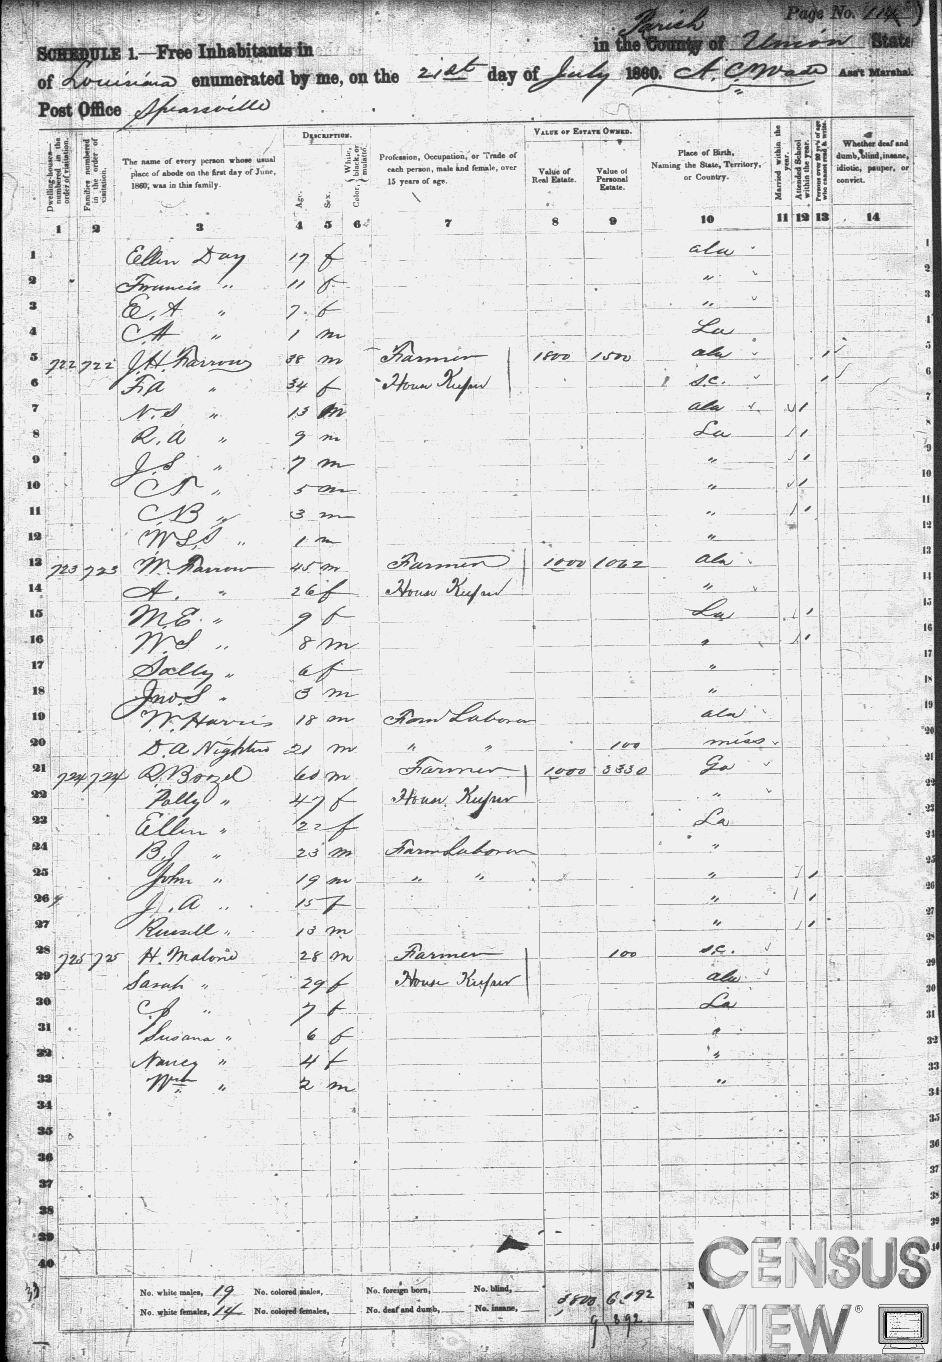 Page No. 114
SCHEDULE 1.—Free Inhabitants in in the County Parish of Union State
of Louisiana enumerated by me, on the 21st day of July 1860. A. C. Wade Ass't Marshal.
Post Office Spearsville
Dwelling-houses—numbered in the order of visitation.
Families numbered in the order of visitation.
The name of every person whose usual place of abode on the first day of June, 1860, was in this family.
DESCRIPTION.
Age.
Sex.
Color, White, black, or mulatto.
Profession, Occupation, or Trade of each person, male and female, over 15 years of age.
VALUE OF ESTATE OWNED.
Value of Real Estate.
Value of Personal Estate.
Place of Birth, Naming the State, Territory, or Country.
Married within the year.
Attended School within the year.
Persons over 20 y'rs of age who cannot read & write.
Whether deaf and dumb, blind, insane, idiotic, pauper, or convict.
1 2 3 4 5 6 7 8 9 10 11 12 13 14
1 Ellen Day 17 f ala 1
2 Francis " 11 f " 2
3 E. A " 7 f " 3
4 C A " 1 m La 4
5 722 722 J. H. Farrow 38 m Farmer 1800 1500 ala 1
6 F A " 34 f House Keeper S.C. 1
7 N. S " 13 m ala 1
8 R. A " 9 m La 1
9 J. S " 7 m " 1
10 " 5 m " 1
11 C B " 3 m " 1
12 W S. S " 1 m "
13 723 723 W. Farrow 45 m Farmer 1000 1062 ala
14 A. " 26 f House Keeper "
15 M. E. " 9 f La 1
16 W. S " 8 m " 1
17 Sally " 6 f "
18 Jno. S " 3 m "
19 W. Harris 18 m Farm Laborer ala
20 D. A 21 m " " 100 miss
21 724 724 Bozel 60 m Farmer 1000 3330 Ga
22 Polly " 47 f House Keeper "
23 Ellen " 22 f La
24 B. J " 23 m Farm Laborer "
25 John " 19 m " " " 1
26 J. A " 15 f " 1
27 Russell " 13 m " 1
28 725 725 H. Malone 28 m Farmer 100 S.C.
29 Sarah " 29 f House Keeper ala
30 C. J " 7 f La
31 Susana " 6 f "
32 Nancy " 4 f "
33 Wm " 2 m "
34
35
36
37
38
39
40
No. white males, 19 No. colored males, No. foreign born, No. blind,
No. white females, 14 No. colored females, No. deaf and dumb, No. insane, 3800 6092
9,892
CENSUS
VIEW®